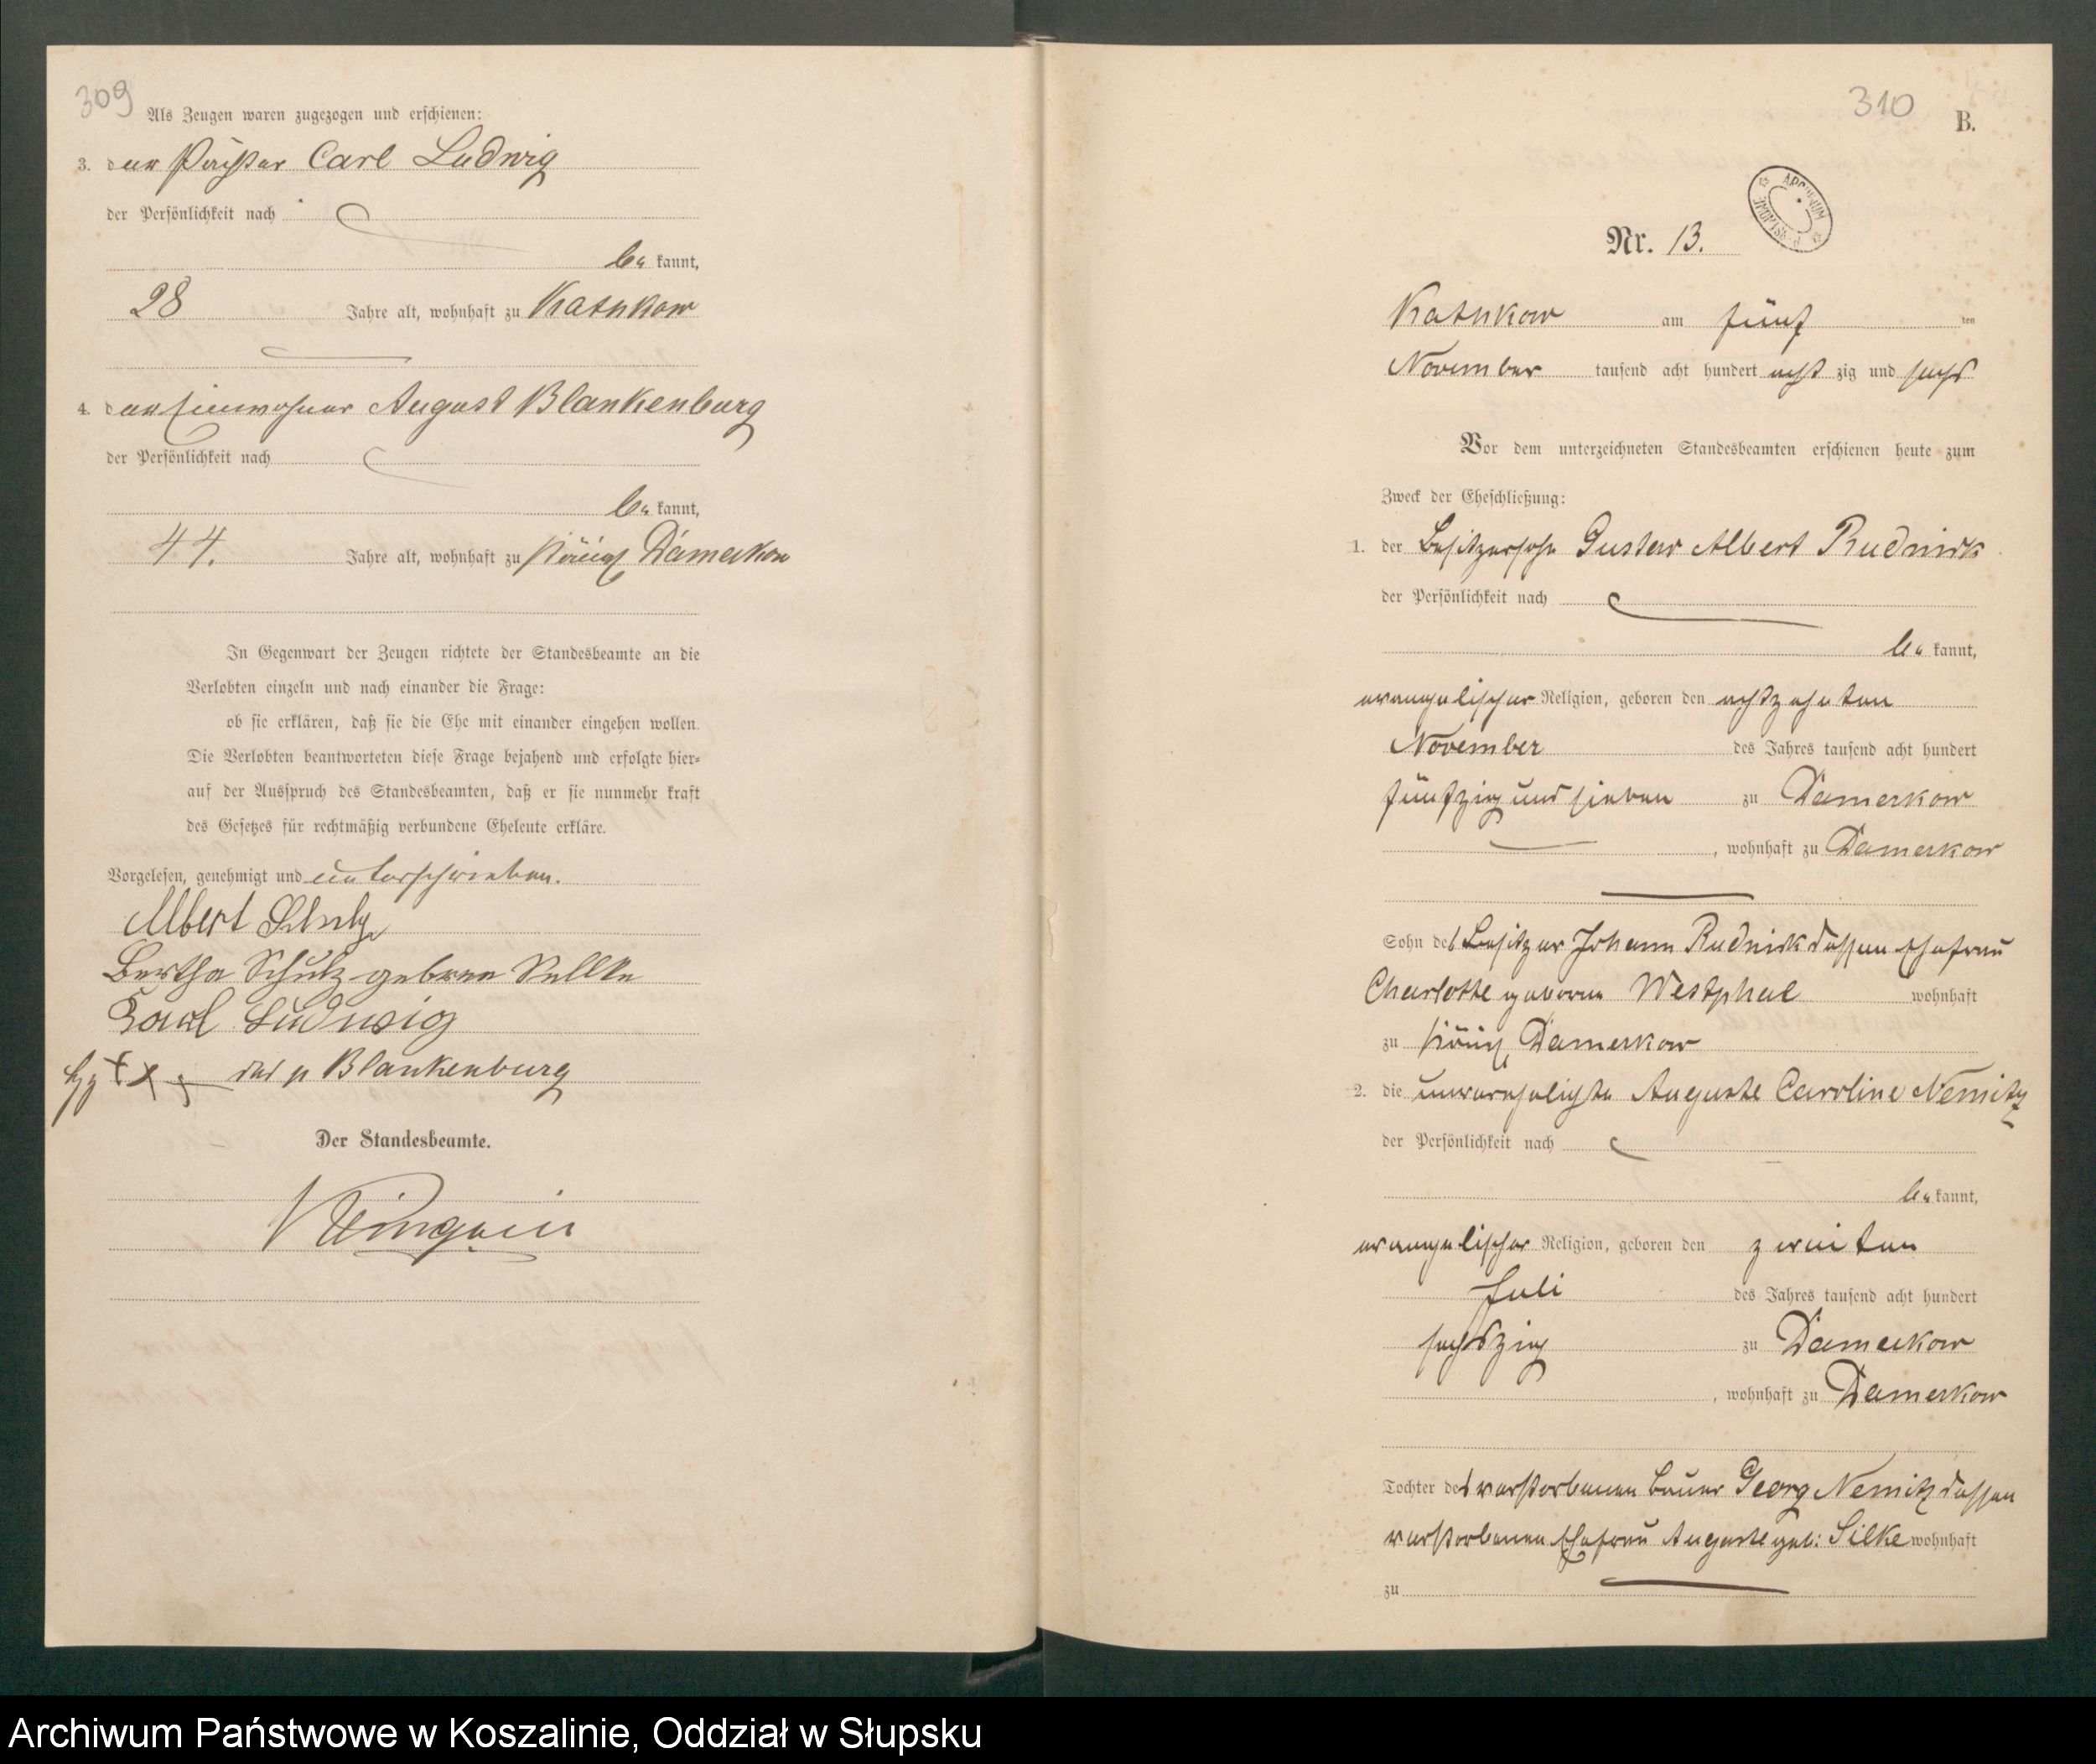 309
Als Zeugen waren zugezogen und erschienen:
3. der Pächter Carl Ludwig
der Persönlichkeit nach
be kannt,
28 Jahre alt, wohnhaft zu Katkow
4. der Einwohner August Blankenburg
der Persönlichkeit nach
be kannt,
44. Jahre alt, wohnhaft zu Königl Damerkow
In Gegenwart der Zeugen richtete der Standesbeamte an die
Verlobten einzeln und nach einander die Frage:
ob sie erklären, daß sie die Ehe mit einander eingehen wollen.
Die Verlobten beantworteten diese Frage bejahend und erfolgte hier=
auf der Ausspruch des Standesbeamten, daß er sie nunmehr kraft
des Gesetzes für rechtmäßig verbundene Eheleute erkläre.
Vorgelesen, genehmigt und unterschrieben.
Albert Schulz
Bertha Schulz geborene Sellke
Karl Ludwig
Hz +++ des p Blankenburg
Der Standesbeamte.
310
B.
ARCHIWUM
Nr. 13.
Katkow am fünf ten
November tausend acht hundert acht zig und sechs
Vor dem unterzeichneten Standesbeamten erschienen heute zum
Zweck der Eheschließung:
1. der Besitzersohn Gustav Albert Rudnick
der Persönlichkeit nach
be kannt,
evangelischer Religion, geboren den achtzehnten
November des Jahres tausend acht hundert
fünfzig und sieben zu Damerkow
, wohnhaft zu Damerkow
Sohn des Besitzer Johann Rudnick dessen Ehefrau
Charlotte geborene Westphal wohnhaft
zu Königl Damerkow
2. die unverehelichte Auguste Caroline Nemitz
der Persönlichkeit nach
be kannt,
evangelischer Religion, geboren den zweiten
Juli des Jahres tausend acht hundert
sechszig zu Damerkow
, wohnhaft zu Damerkow
Tochter des verstorbenen Bauer Georg Nemitz dessen
verstorbenen Ehefrau Auguste geb: Silke wohnhaft
zu
Archiwum Państwowe w Koszalinie, Oddział w Słupsku